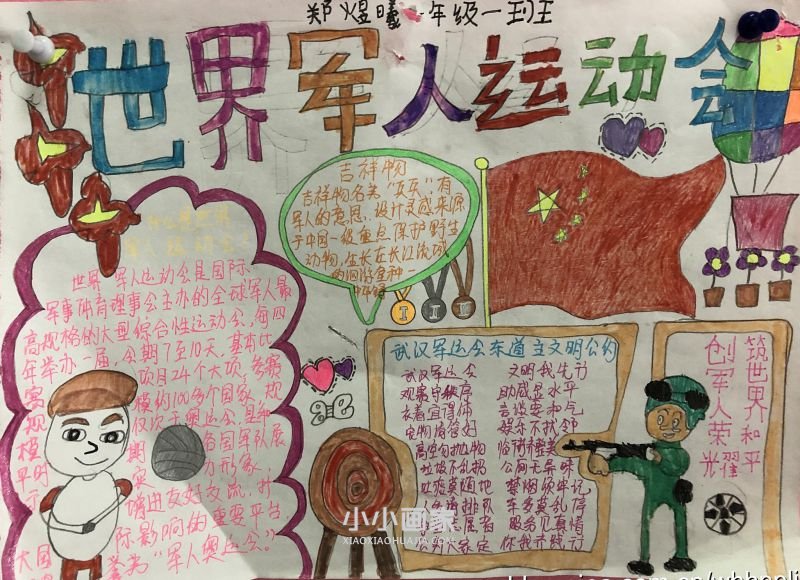 郑煜曦 一年级一班
世界军人运动会
吉祥物
吉祥物名为"兵兵"有
军人的意思,设计灵感来源
于中国一级重点保护野生
动物,生长在长江流域
的洄游鱼种一
中华鲟
世界军人运动会是国际
军事体育理事会主办的全球军人最
高规格的大型综合性运动会,每四
年举办一届,会期7至10天,基本比
赛项目24个大项,参赛
规模约100多个国家,规
模仅次于奥运会,是和
平时期各国军队展
示
增进友好交流,扩
大国际影响的重要平台
誉为"军人奥运会。"
武汉军运会东道主文明公约
武汉军运会 文明我先行
观赛守秩序 助威显水平
衣着宜得体 言谈要和气
宠物须管好 娱乐不扰邻
高空勿抛物
垃圾不乱扔 公厕无异味
禁烟须牢记
车多莫乱停
服务见真情
你我齐践行
筑世界和平
创军人荣光耀
小小画家
XIAOXIAOHUAJIA.COM